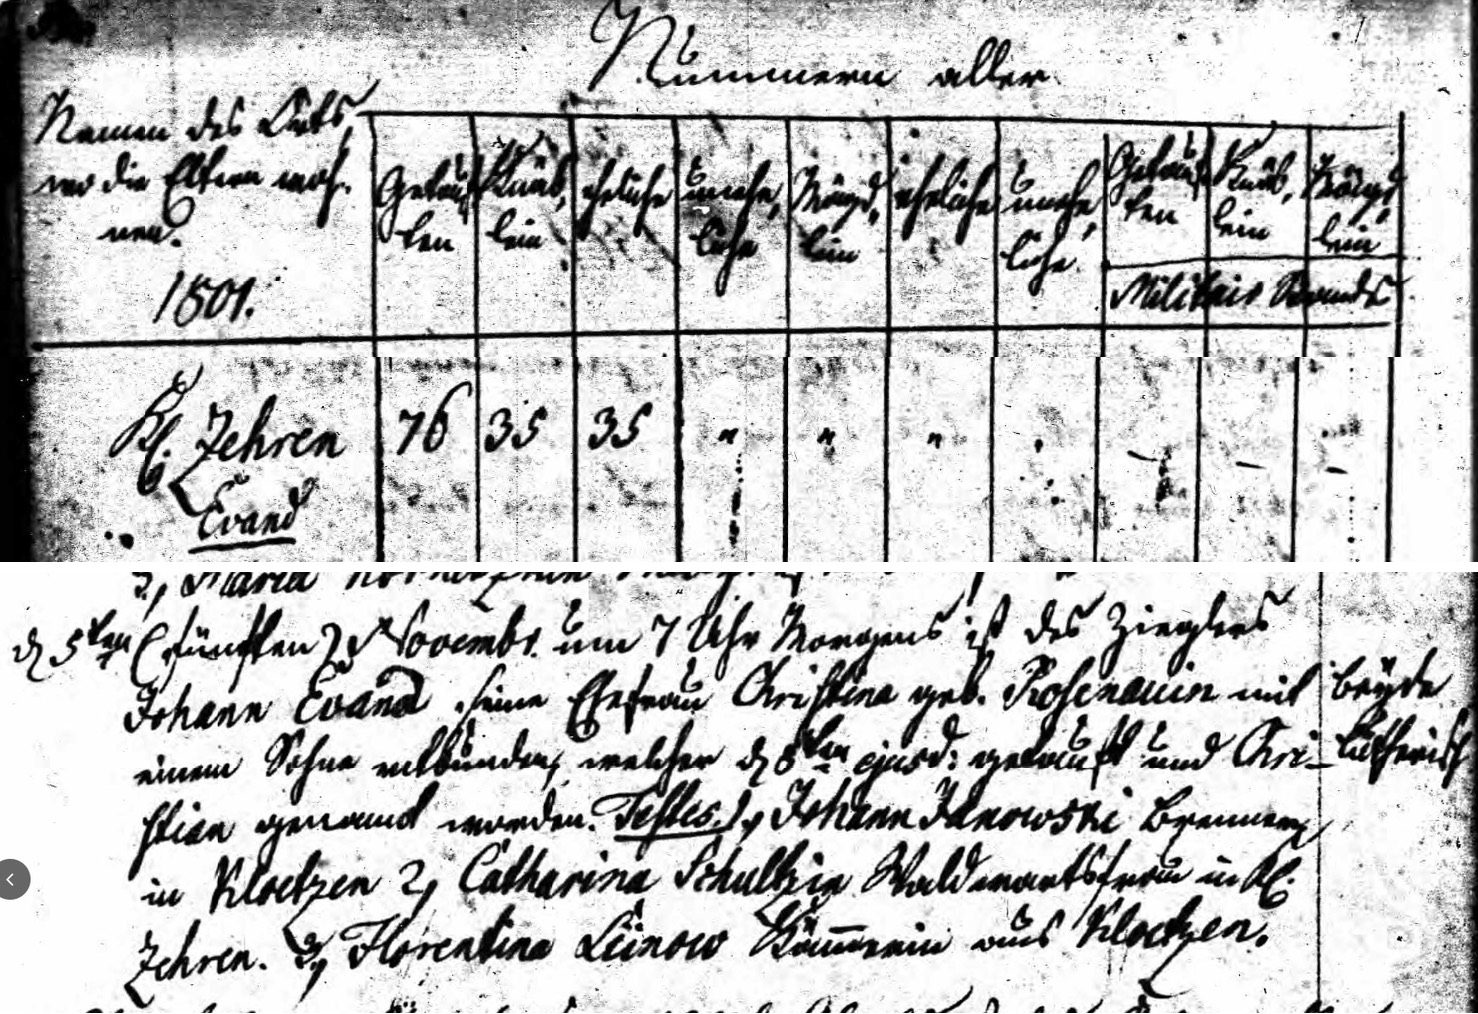 Nummern aller
Namen des Orts,
wo die Eltern woh-
nen.
1801.
Getauf
ten
Knäb,
lein
eheliche
unehe,
liche
Mägd,
lein
eheliche
unehe,
liche
Getauf
ten
Knäb,
lein
Mägd,
lein
Militair Standes
Kl. Zehren 76 35 35 " " "
Evand
3, Maria
d 5ten (fünften) Novembr. um 7 Uhr Morgens ist des Zieglers
Johann Evand, seine Ehefrau Christina geb. Rosenauin mit
einem Sohne entbunden, welcher d 8ten ejusd: getauft und Chri-
stian genannt worden. Testes. 1, Johann Janowski Brenner
in Kloetzen 2, Catharina Schultzin Waldwartsfrau in Kl.
Zehren. 3, Florentina Leinow aus Kloetzen.
beyde
lutherisch